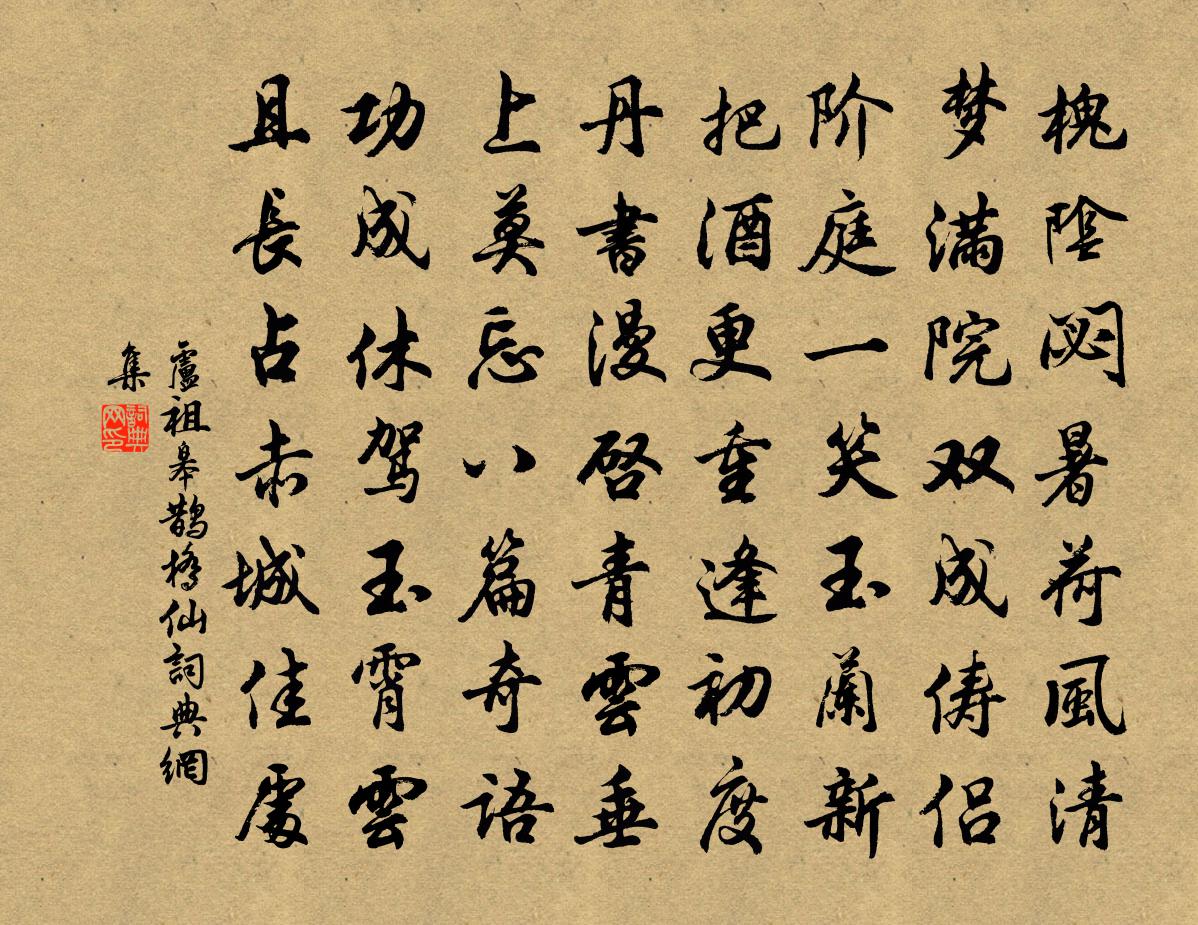 槐陰閟暑荷風清
梦満院双成俦侣
阶庭一笑玉蘭新
把酒更重逢初度
丹書漫啓青雲垂
上莫忘八篇奇语
功成休驾玉霄雲
且長占赤城佳處
盧祖皋鵲橋仙詞典網
集
詞典网印